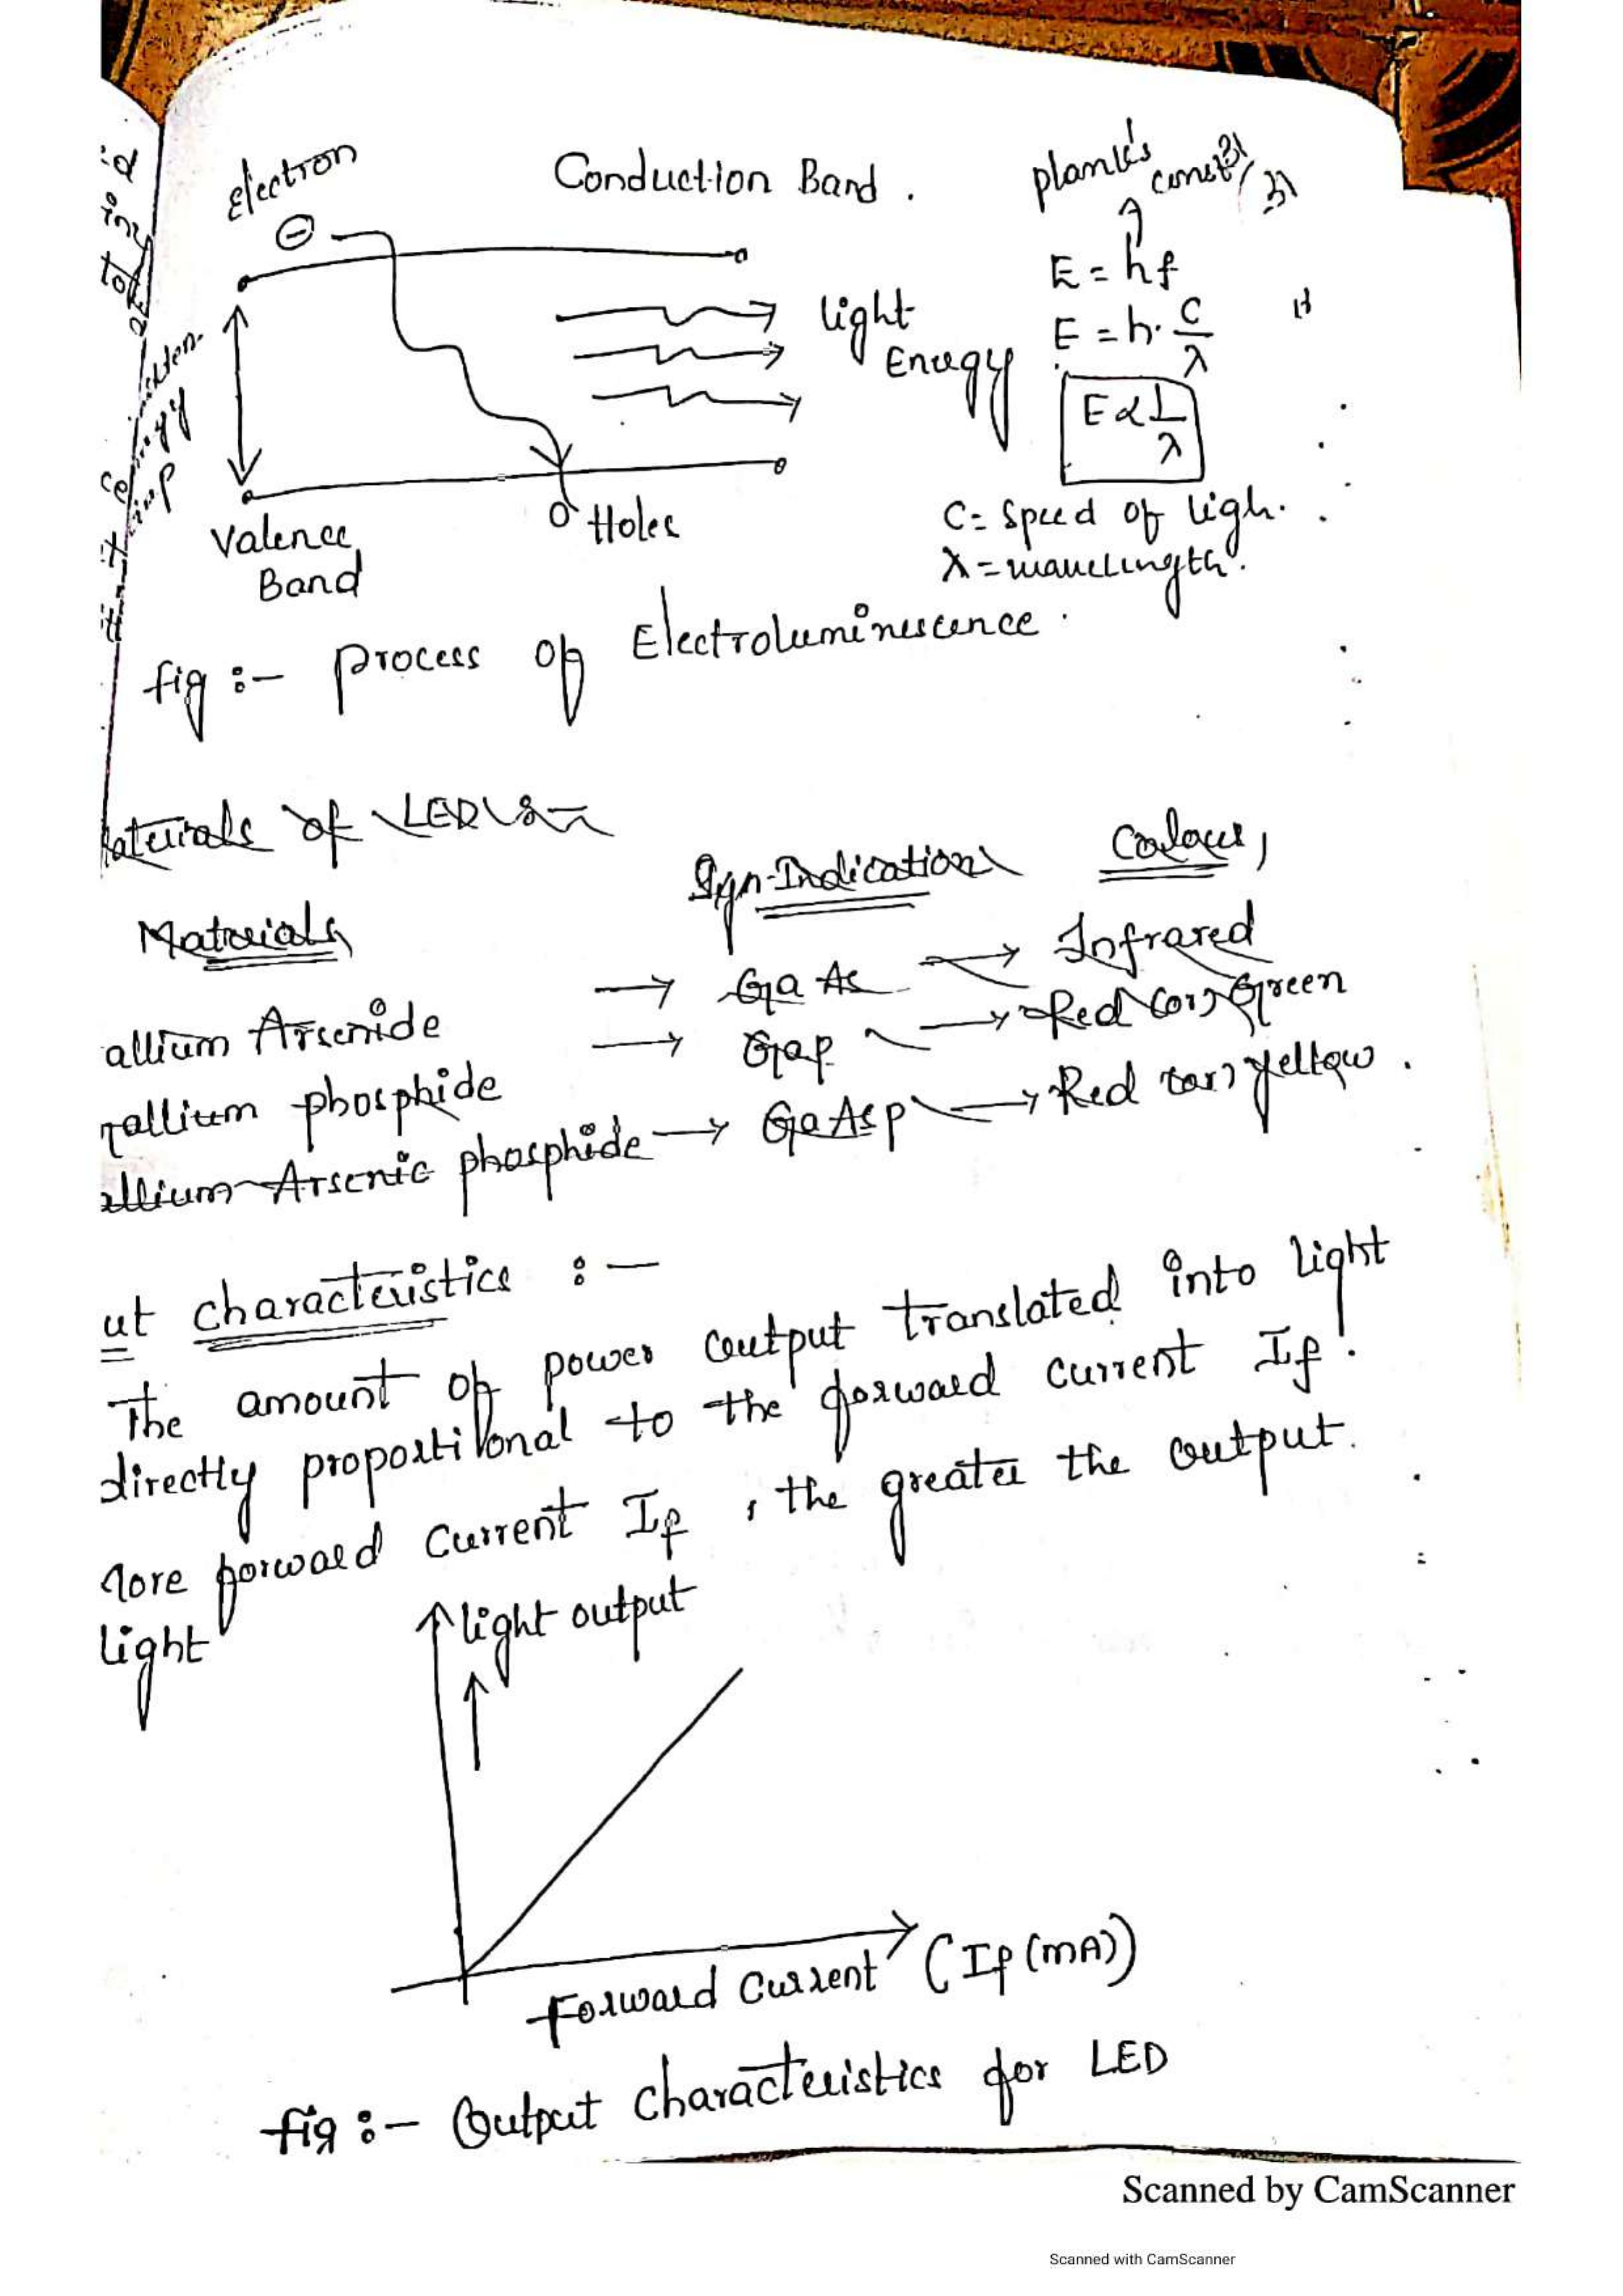 Electron
Conduction Band .
Θ
E = hf
E = h. C/λ
E α 1/λ
light
Enegy
Valence
Band
O Holes
C = Speed of ligh.
λ =
fig :- process of Electroluminescence .
aterials of LED's :-
Materials
Syn-Indication
Colour,
allium Arsenide → GaAs → Infrared
gallium phosphide → Gap → Red (or) Green
allium Arsenic phosphide → GaAsp → Red (or) yellow .
ut characteristics :-
The amount of power output translated into light
directly proportional to the forward current If .
More forward current If , the greater the output.
light
light output
Forward Current (If (mA))
fig :- Output characteristics for LED
Scanned by CamScanner
Scanned with CamScanner